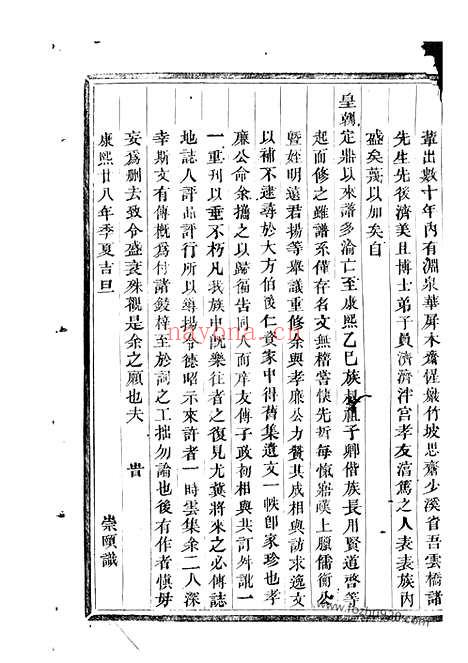 輩出數十年內有淵泉華屏木齋惺嚴竹坡思齋少溪省吾雲橋諸
先生先後濟美且博士弟子員濟濟泮宮孝友清篤之人表表族內
盛矣蔑以加矣自
皇朝定鼎以來譜多淪亡至康熙乙巳族叔祖子卿偕族長用賢道啓等
起而修之雖譜系僅存名文無稽嘗快先祈每慨鼎嘆上臘儒衡公
曁姪明遠君揚等舉議重修余與孝廉公力贊其成相與訪求逸文
以補不逮尋於大方伯後仁發家中得舊集遺文一帙卽家珍也孝
廉公命余攜之以歸福告同而庠友傳子政初相與共訂舛訛一
一重刊以垂不朽凡我族中旣樂往者之復見尤冀將來之必傳誌
地誌人評品評行所以尋揚令德昭示來許者一時雲集余二人深
幸斯文有傳槪爲付諸鋟梓至於詞之工拙勿論也後有作者愼毋
妄爲刪去致令盛衰殊觀是余之願也夫 昔
康熙廿八年季夏吉旦 崇頤識
nayona.cn
www.fozhu920.com